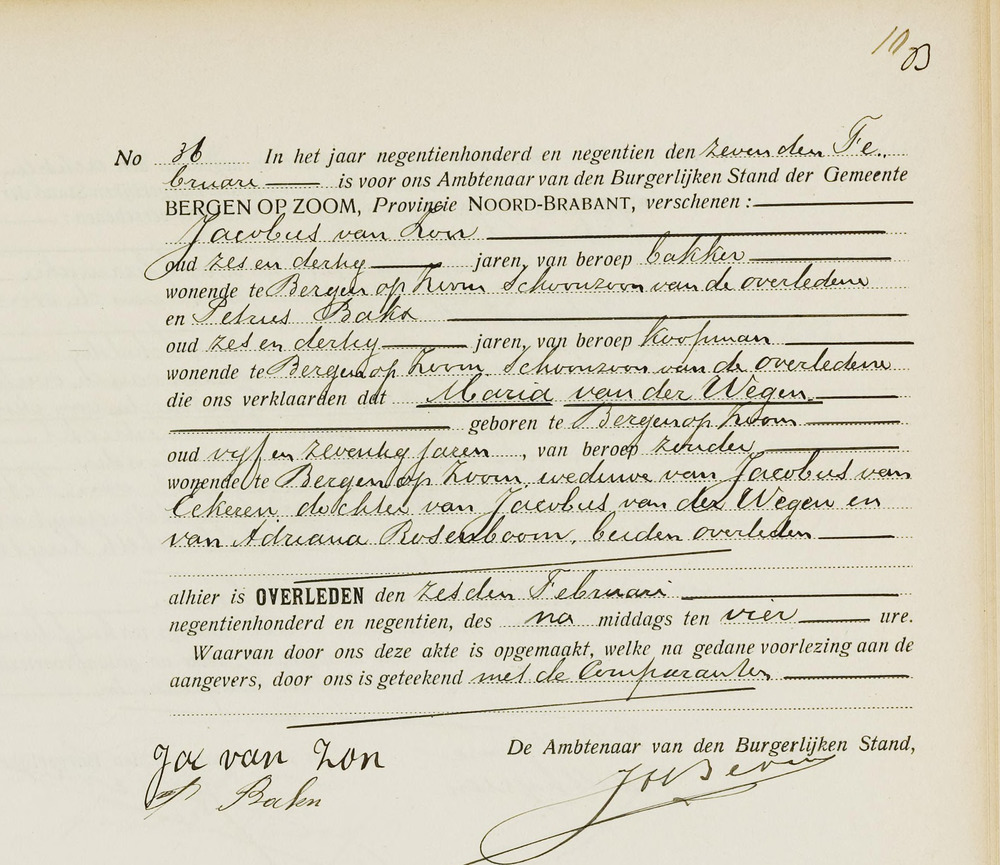 10
No 36 In het jaar negentienhonderd en negentien den zevenden Fe-
bruari is voor ons Ambtenaar van den Burgerlijken Stand der Gemeente
BERGEN OP ZOOM, Provincie NOORD-BRABANT, verschenen :
Jacobus van Zon
oud zes en dertig jaren, van beroep bakker
wonende te Bergen op Zoom, Schoonzoon van de overledene
en Petrus Bakx
oud zes en dertig jaren, van beroep koopman
wonende te Bergen op Zoom, Schoonzoon van de overledene
die ons verklaarden dat Maria van der Wegen
geboren te Bergen op Zoom
oud vijf en zeventig jaren, van beroep zonder
wonende te Bergen op Zoom, weduwe van Jacobus van
Eekelen, dochter van Jacobus van der Wegen en
van Adriana Rosenboom, beiden overleden
alhier is OVERLEDEN den zesden Februari
negentienhonderd en negentien, des na middags ten vier ure.
Waarvan door ons deze akte is opgemaakt, welke na gedane voorlezing aan de
aangevers, door ons is geteekend met de Comparanten
De Ambtenaar van den Burgerlijken Stand,
Ja van Zon
P Bakx